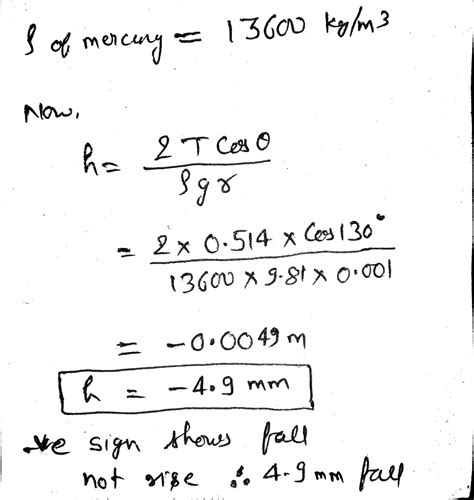 ρ of mercury = 13600 kg/m3
Now,
h = 2 T Cos θ / ρ g r
= 2 × 0.514 × Cos 130° / 13600 × 9.81 × 0.001
= -0.0049 m
h = -4.9 mm
-ve sign shows fall
not rise ∴ 4.9 mm fall